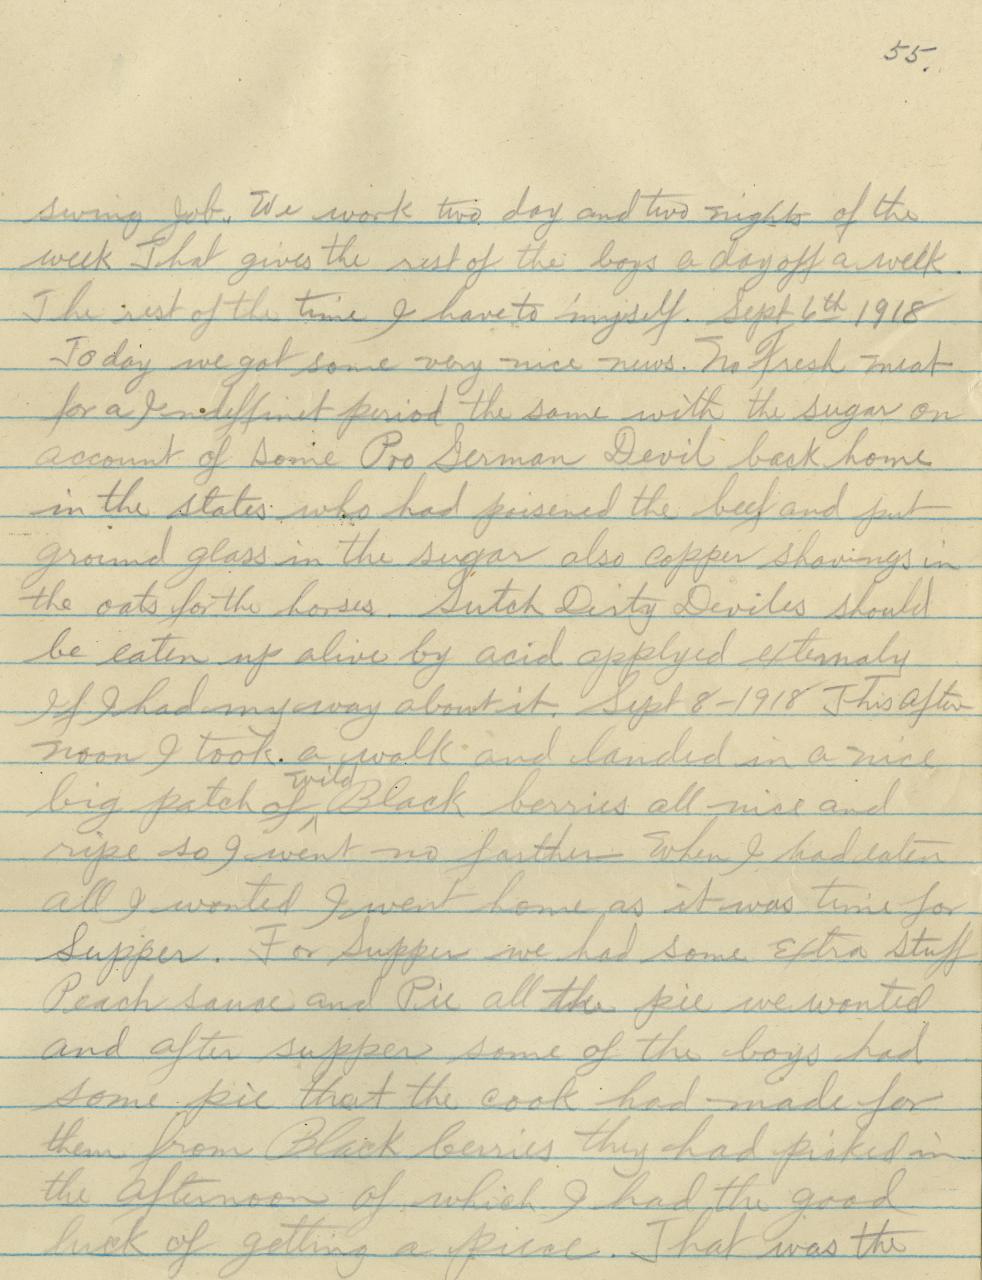 55.
swing job. We work two day and two nights of the
week That gives the rest of the boys a day off a week.
The rest of the time I have to myself. Sept 6th 1918
Today we got some very nice news. No Fresh meat
for a Indeffinet period the same with the sugar on
account of some Pro German Devil back home
in the states who had poisened the beef and put
ground glass in the sugar also copper shavings in
the oats for the horses. Sutch Dirty Deviles should
be eaten up alive by acid applyed externaly
If I had my way about it. Sept 8-1918 This after
noon I took a walk and landed in a nice
big patch of wild Black berries all nice and
ripe so I went no farther When I had eaten
all I wonted I went home as it was time for
Supper. For Supper we had some Extra stuff
Peach sauce and Pie all the pie we wonted
and after supper some of the boys had
some pie that the cook had made for
them from Black berries they had picked in
the afternoon of which I had the good
luck of getting a piece. That was the